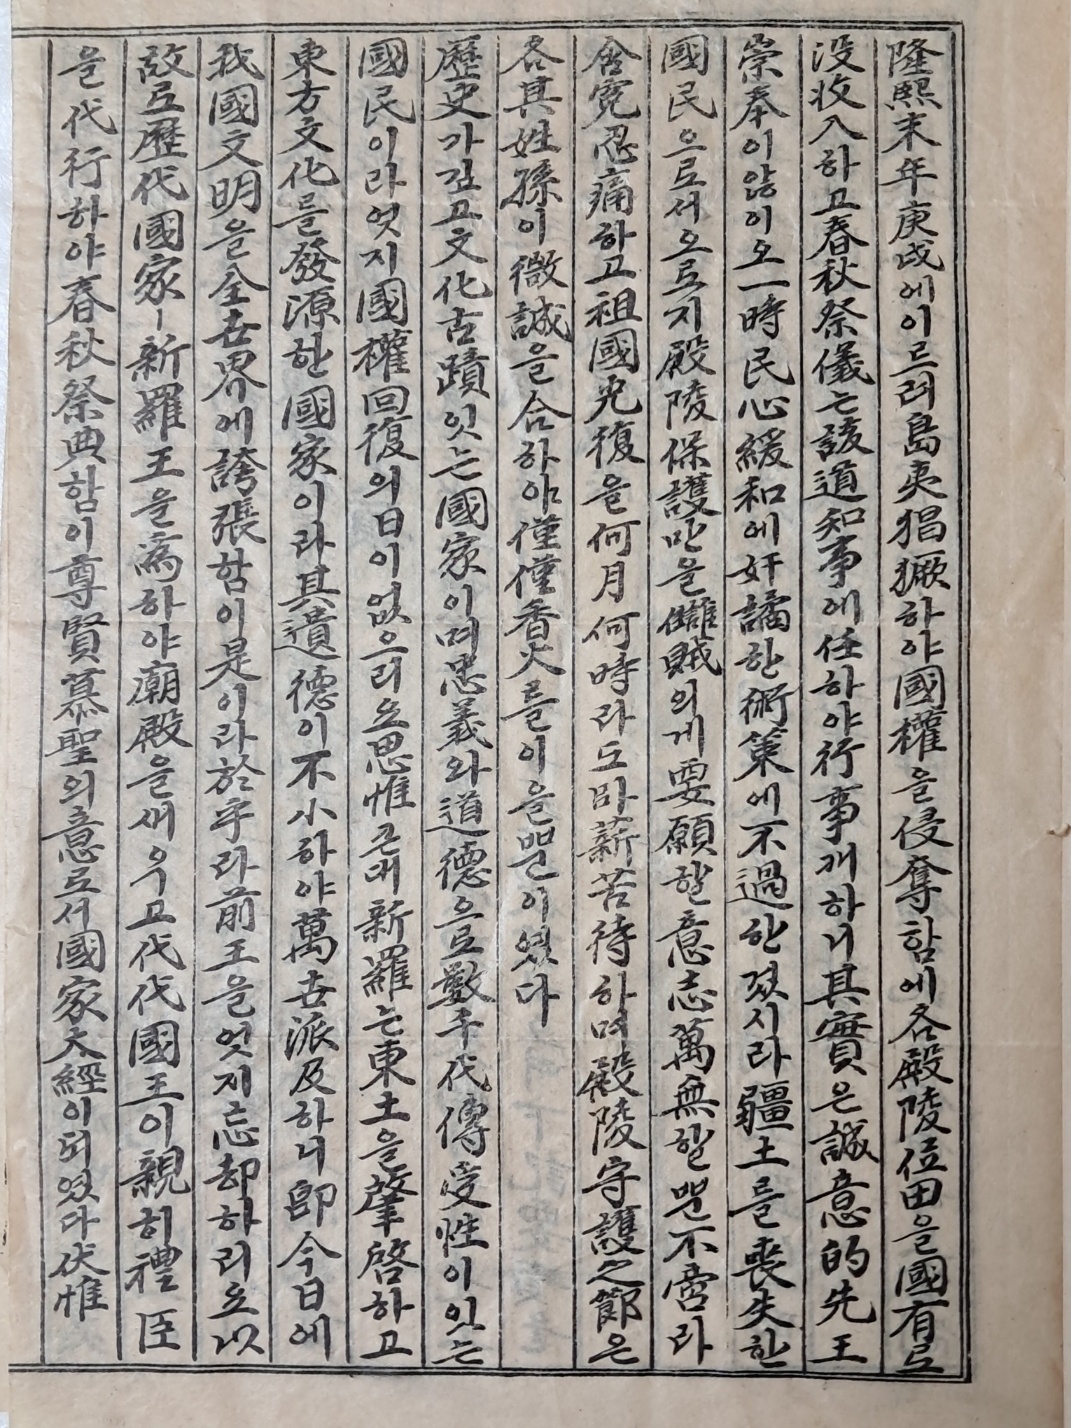 隆熙末年庚戌에이르러島夷猖獗하야國權을侵奪함에各殿陵位田을國有로
沒收入하고春秋祭儀는該道知事에任하야行事개하니其實은誠意的先王
崇奉이않이오一時民心緩和에奸譎한術策에不過한것시라疆土를喪失한
國民으로서오르지殿陵保護만을讎賊의게要願할意志萬無할뿐不啻라
含寃忍痛하고祖國光復을何月何時라도臥薪苦待하며殿陵守護之節은
各其姓孫이微誠을合하야僅僅香火를이을뿐이였다
歷史가깊고文化古蹟잇는國家이며忠義와道德으로數千代傳受性이잇는
國民이라엇지國權回復의日이없으리오思惟근대新羅는東土을肇啓하고
東方文化를發源한國家이라其遺德이不小하야萬世派及하니卽今日에
我國文明을全世界에誇張함이是이라於乎라前王을엇지忘却하리요以
故로歷代國家-新羅王을爲하야廟殿을새우고代代國王이親히禮臣
을代行하야春秋祭典함이尊賢慕聖의意로서國家大經이되였다伏惟